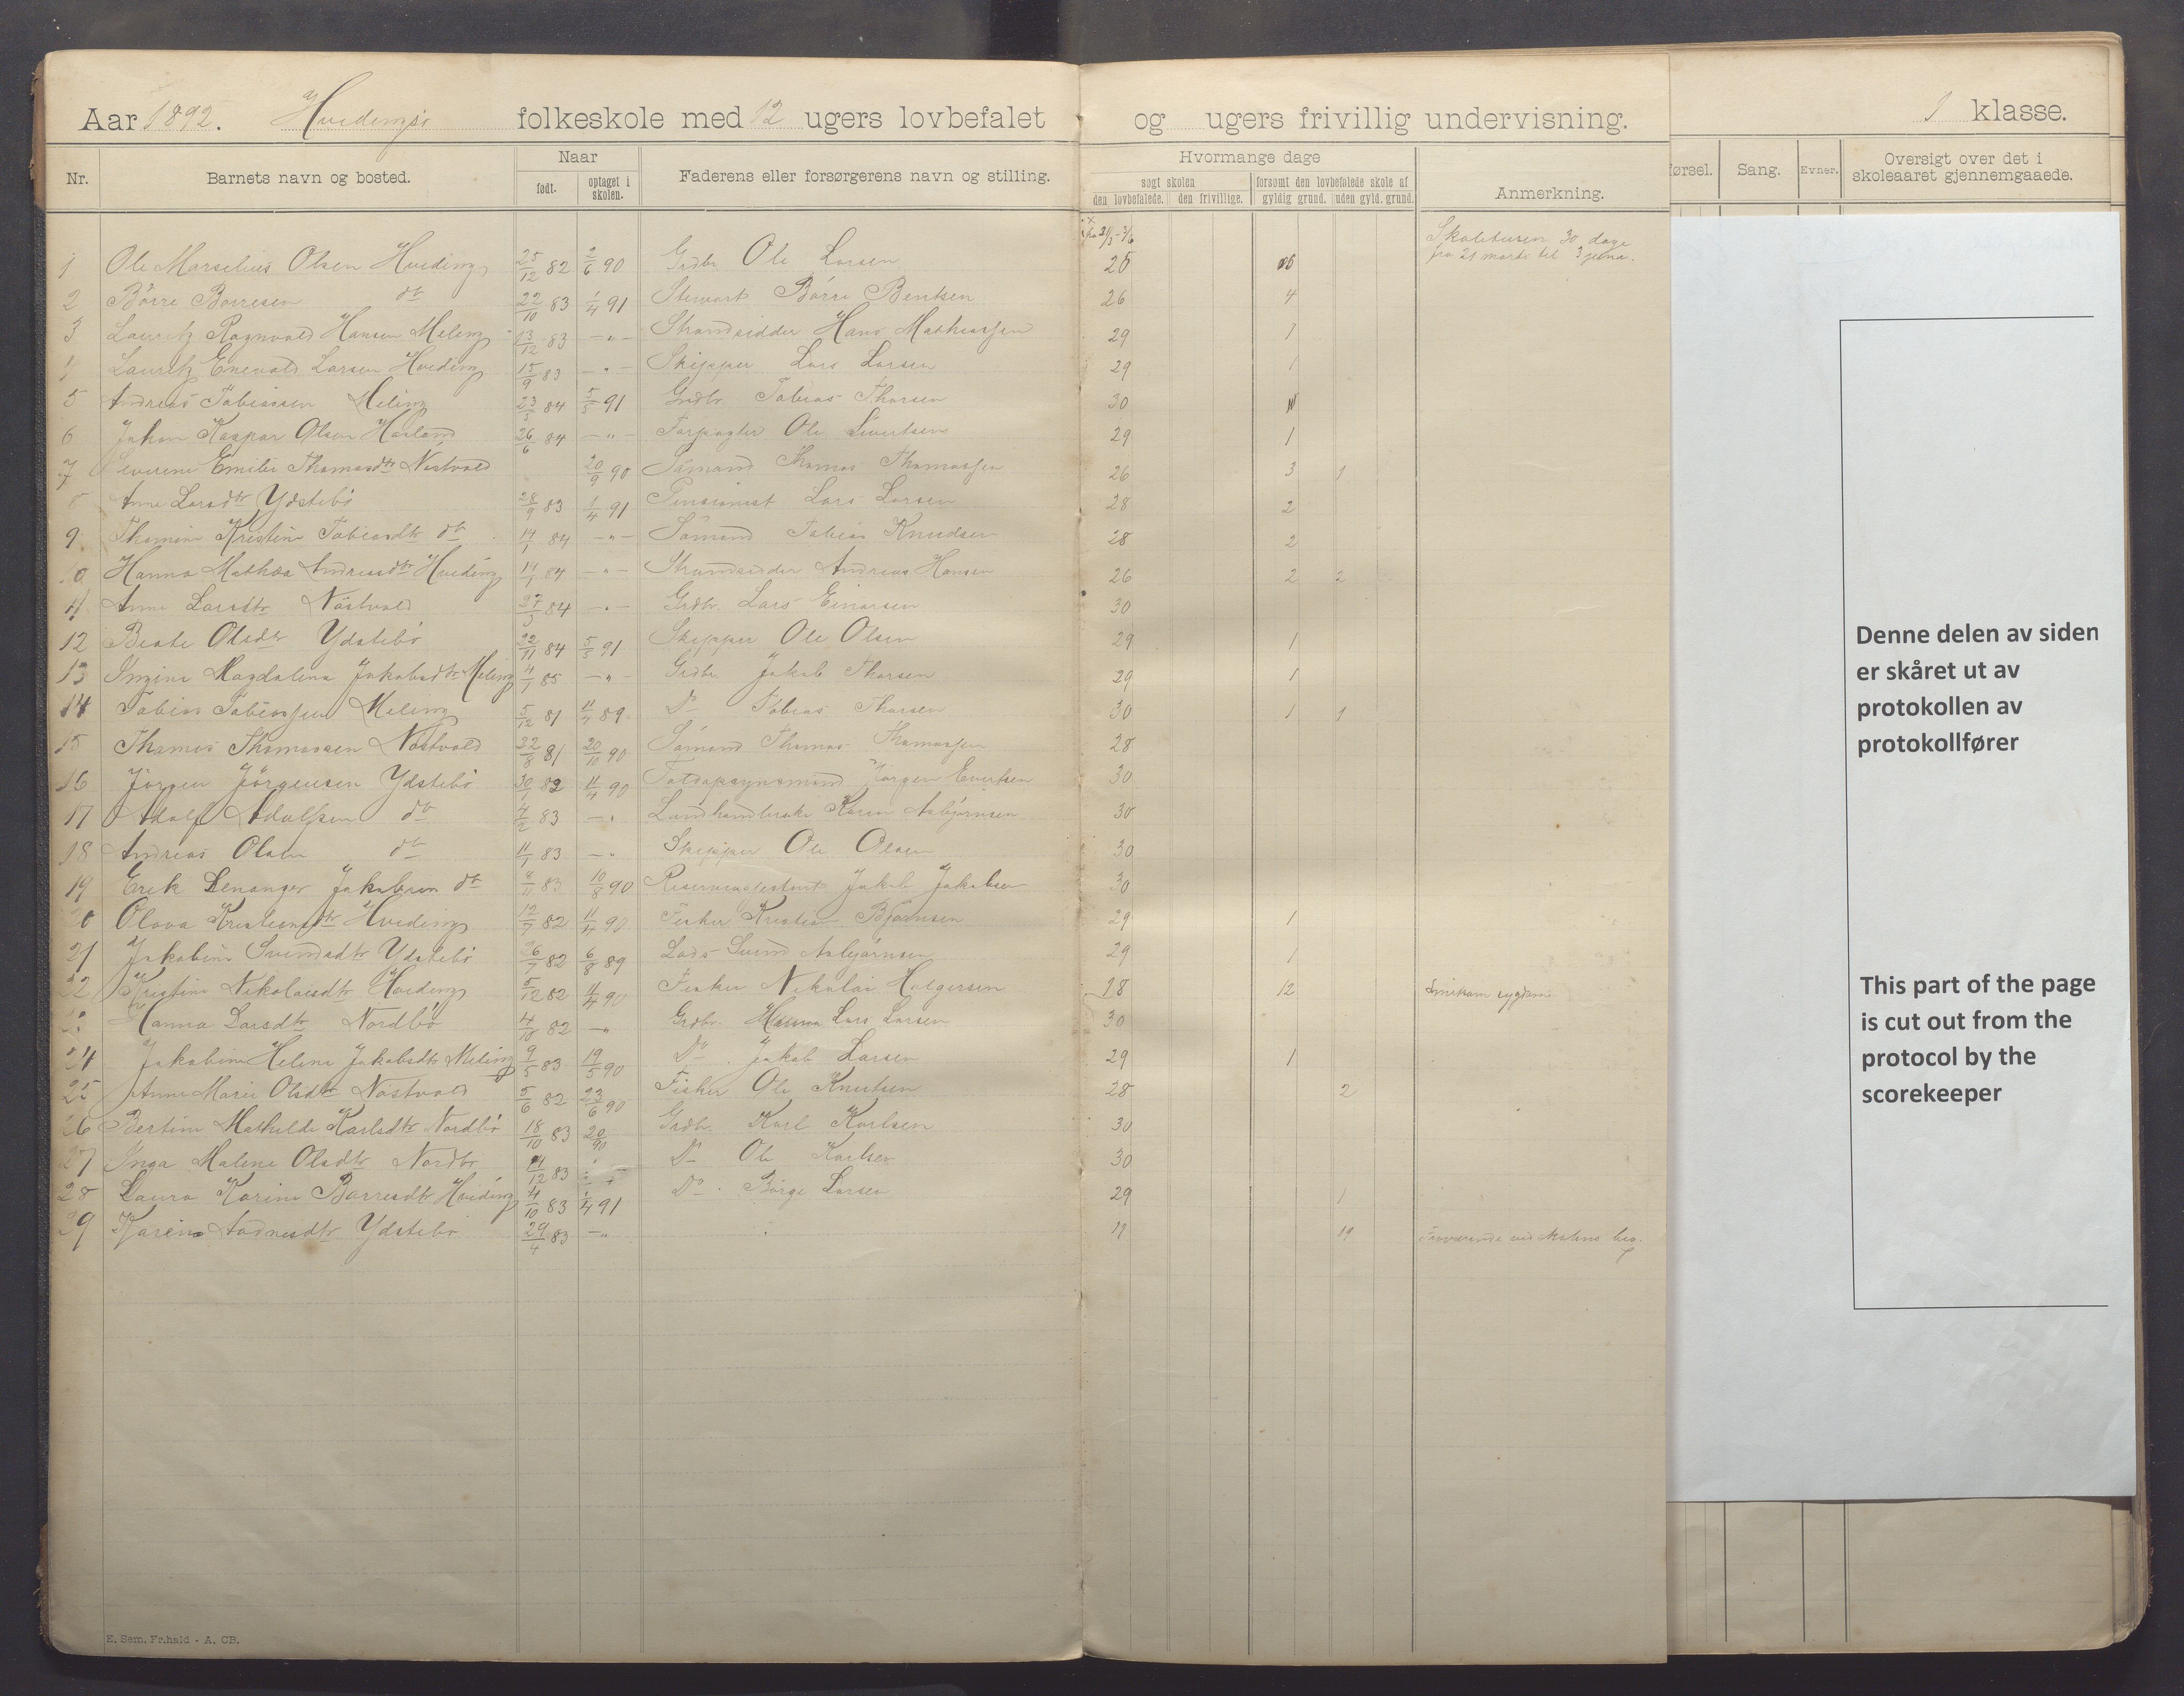 Aar 1892. Hvidingsö folkeskole med 12 ugers lovbefalet og ugers frivillig undervisning. 1 klasse.
Nr. Barnets navn og bosted. Naar født. optaget i skolen. Faderens eller forsørgerens navn og stilling. Hvormange dage søgt skolen den lovbefalede. den frivillige. forsømt den lovbefalede skole af gyldig grund. uden gyld. grund. Anmerkning. Sang. Evner. Oversigt over det i skoleaaret gjennemgaaede.
Skoletursen 30 dage
fra 21 marts til 3 juni.
1 Ole Marselius Olsen Hviding 25/12 82 2/6 90 Grdbr. Ole Larsen
2 Börre Börresen do 22/10 83 1/4 91 Stewart Börre Bentsen 26 4
3 Lauritz Ragnvald Hansen Meling 13/12 83 — " — Strandsidder Hans Mathiassen 29 1
4 Lauritz Enevald Larsen Hviding 15/9 83 — " — Skipper Lars Larsen 29 1
5 Andreas Tobiassen Meling 23/3 84 5/5 91 Grdbr. Tobias Thorsen 30
6 Johan Kaspar Olsen Harland 26/6 84 — " — Forpagter Ole Sivertsen 29 1
7 Severine Emilie Thomasdtr Nästvold 20/9 90 Sömand Thomas Thomassen 26 3 1
8 Anne Larsdtr Ydstebö 28/9 83 1/4 91 Pensionist Lars Larsen 28 2
9 Thomine Kristine Tobiasdtr do 14/1 84 — " — Sömand Tobias Knudsen 28 2
10 Hanna Mathea Andreasdtr Hviding 14/1 84 — " — Strandsidder Andreas Hansen 26 2 2
11 Anne Larsdtr Nästvold 27/3 84 — " — Grdbr. Lars Einarsen 30
12 Beate Olsdtr Ydstebö 22/11 84 5/5 91 Skipper Ole Olsen 29 1
13 Ingine Magdalena Jakobsdtr Meling 4/1 85 — " — Grdbr. Jakob Thorsen 29 1
14 Tobias Tobiassen Meling 5/12 81 11/4 89 Do Tobias Thorsen 30 1 1
15 Thomas Thomassen Nästvold 22/8 81 20/10 90 Sömand Thomas Thomassen 28
16 Jörgen Jörgensen Ydstebö 30/1 82 11/4 90 Jörgen Evertsen 30
17 Adolf Adolfsen do 4/2 83 — " Karen Asbjörnsen 30
18 Andreas Olsen do 11/1 83 — " Skipper Ole Olsen 30
19 Erik Jakobsen do 8/11 83 10/8 90 Jakob Jakobsen 30
20 Olava Kristiansdtr Hviding 12/7 82 11/4 90 Fisker Kristian Björnsen 29 1
21 Jakobine Svendsdtr Ydstebö 26/7 82 6/8 89 Lods Svend Asbjörnsen 29 1
22 Kristine Nikolaisdtr Hviding 5/12 82 11/4 90 Fisker Nikolai Holgersen 18 12 Smitsom sygdom
23 Hanna Larsdtr Nordbö 4/10 82 — " Grdbr. Lars Larsen 30
24 Jakobine Helene Jakobsdtr Meling 9/5 83 19/5 90 Do Jakob Larsen 29 1
25 Anne Marie Olsdtr Nästvold 5/6 82 23/6 90 Fisker Ole Knutsen 28 2
26 Bertine Mathilde Karlsdtr Nordbö 18/10 83 20/90 Grdbr. Karl Karlsen 30
27 Inga Malene Olsdtr Nordbö 14/12 83 Do Ole Karlsen 30
28 Laura Karine Börresdtr Hviding 4/10 83 1/4 91 Do Börge Larsen 29 1
29 Karine Ydstebö 29/4 83 — " 11 19 Fraværende ved skolens beg.
Denne delen av siden
er skåret ut av
protokollen av
protokollfører
This part of the page
is cut out from the
protocol by the
scorekeeper
E. Sem, Fr.hald - A. CB.